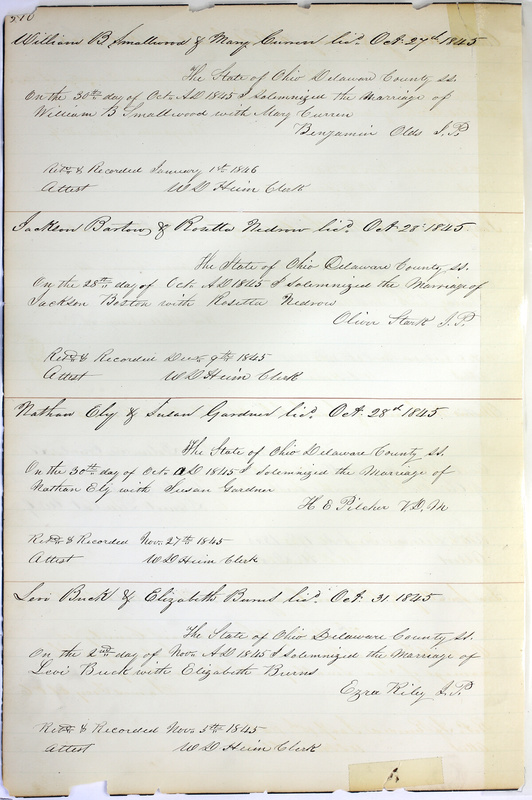 516
William B. Smallwood & Mary Curren lic.d Oct. 27th 1845
The State of Ohio Delaware County ss.
On the 30th day of Oct. A.D. 1845 I solemnized the Marriage of
William B Smallwood with Mary Curren
Benjamin Olds J.P.
Ret.d & Recorded January 1st 1846
Attest W D Heim Clerk
Jackson Barton & Rosetta Nedrow lic.d Oct. 28th 1845
The State of Ohio Delaware County ss.
On the 28th day of Oct. A D 1845 I Solemnized the Marriage of
Jackson Boston with Rosetta Nedrow
Oliver Stark J.P.
Ret.d & Recorded Dec. 9th 1845
Attest W D Heim Clerk
Nathan Ely & Susan Gardner lic.d Oct. 28th 1845
The State of Ohio Delaware County ss.
On the 30th day of Oct. A D 1845 I solemnized the Marriage of
Nathan Ely with Susan Gardner
H E Pilcher V.D.M
Ret.d & Recorded Nov. 27th 1845
Attest W D Heim Clerk
Levi Buck & Elizabeth Burns lic.d Oct. 31 1845
The State of Ohio Delaware County ss.
On the 2nd day of Nov. A D 1845 I Solemnized the Marriage of
Levi Buck with Elizabeth Burns
Ezra Riley J.P.
Ret.d & Recorded Nov. 5th 1845
Attest W D Heim Clerk